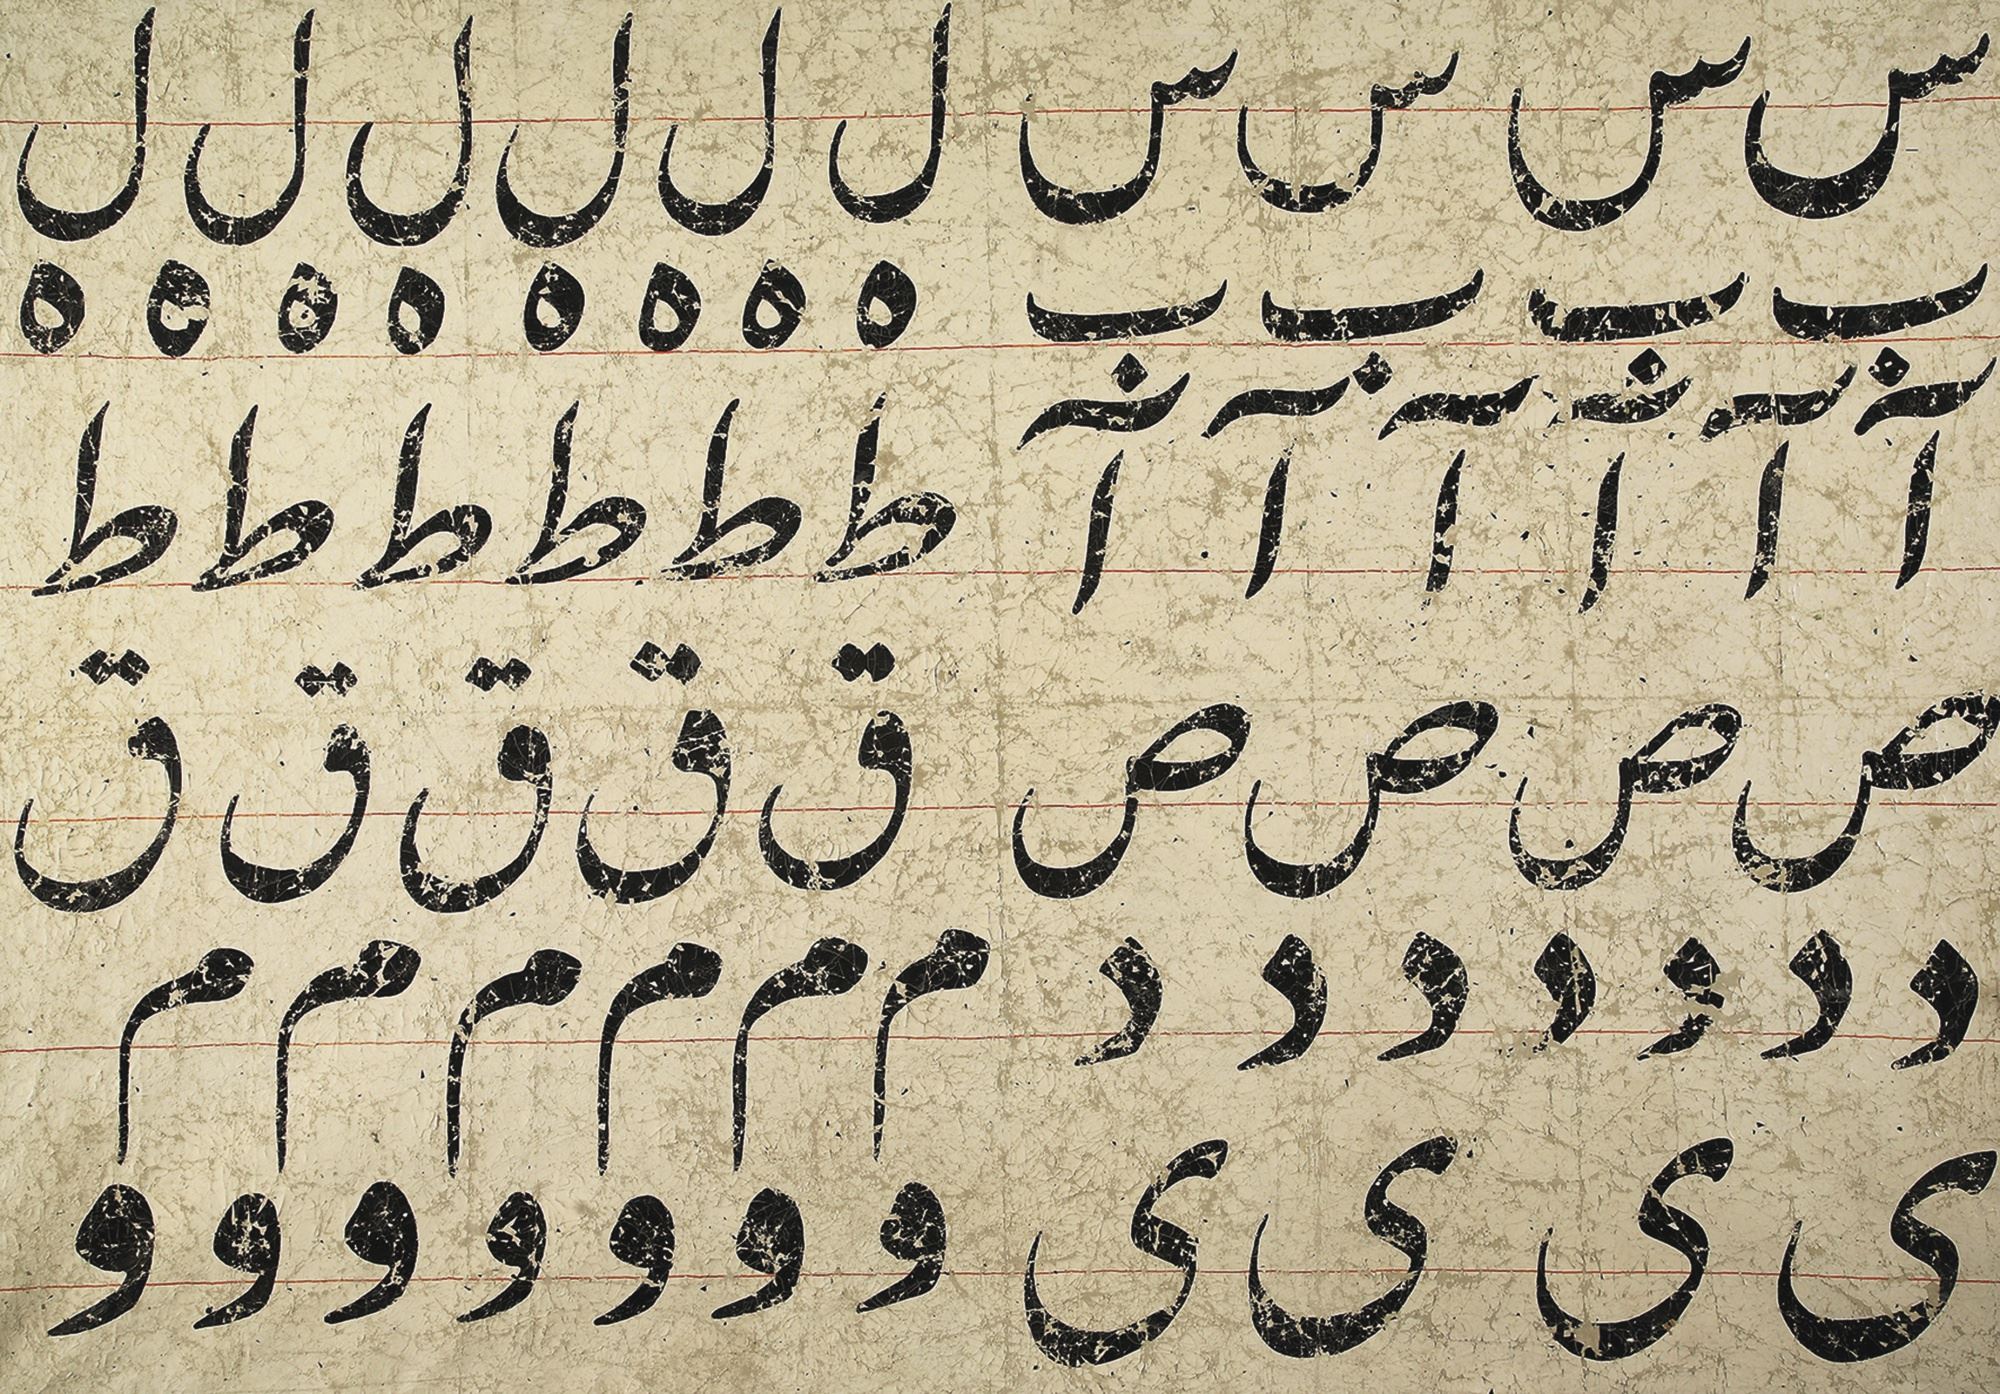 س س س س ل ل ل ل ل ل
ب ب ب ب ه ه ه ه ه ه ه ه
آ آ آ آ آ آ ط ط ط ط ط ط
ص ص ص ص ق ق ق ق ق
د د د د د د د م م م م م م
ی ی ی ی و و و و و و و